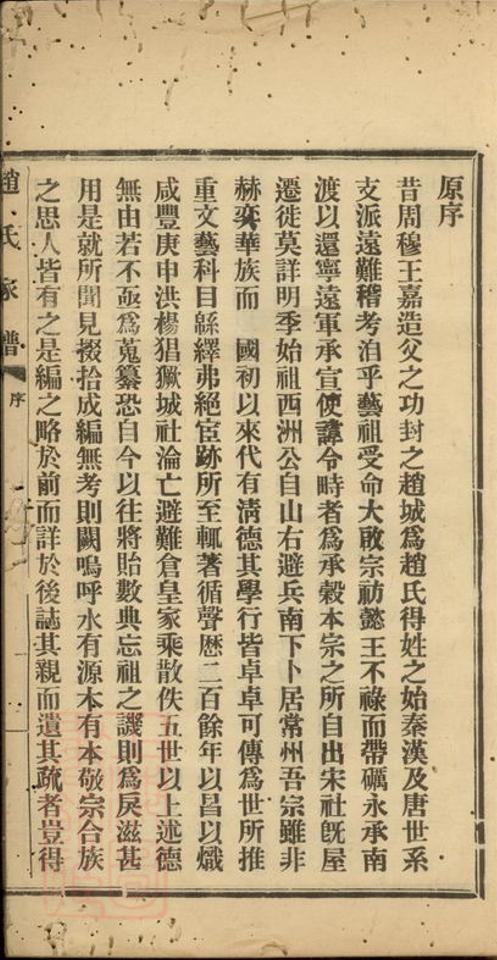 原序
昔周穆王嘉造父之功封之趙城爲趙氏得姓之始秦漢及唐世系
支派遠難稽考洎乎藝祖受命大啟宗祊懿王不祿而帶礪永承南
渡以還寧遠軍承宣使諱令畤者爲承穀本宗之所自出宋社旣屋
遷徙莫詳明季始祖西洲公自山右避兵南下卜居常州吾宗雖非
赫奕華族而　國初以來代有淸德其學行皆卓卓可傳爲世所推
重文藝科目緜繹弗絕宦跡所至輒著循聲歷二百餘年以昌以熾
咸豐庚申洪楊猖獗城社淪亡避難倉皇家乘散佚五世以上述德
無由若不亟爲蒐纂恐自今以往將貽數典忘祖之譏則爲戾滋甚
用是就所聞見掇拾成編無考則闕嗚呼水有源本有本敬宗合族
之思人皆有之是編之略於前而詳於後誌其親而遺其疏者豈得
趙氏家譜
序
一